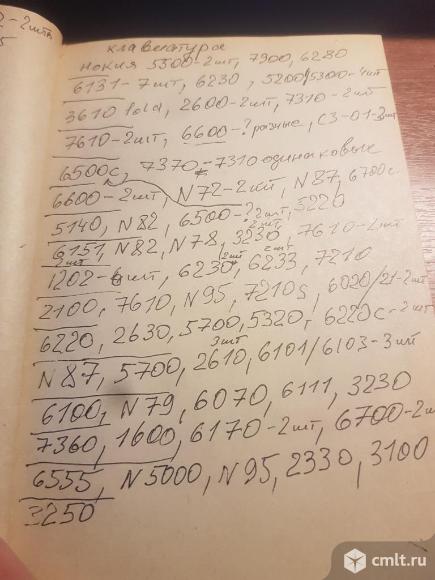 2-2шт
5
клавиатура
нокия 5300-2шт, 7900, 6280
6131-7шт, 6230, 5200/5300-4шт
3610 fold, 2600-2шт, 7310-2шт
7610-2шт, 6600-? разные, C3-01-2шт
6500c, 7370-7310 одинаковые
6600-2шт, N72-2шт, N87, 6700c
5140, N82, 6500-? 2шт, 5220
6151, N82, N78, 3230, 7610-2шт
2шт 2шт 2шт
1202-6шт, 6230, 6233, 7210
2100, 7610, N95, 7210s, 6020/21-2шт
6220, 2630, 5700, 5320, 6220c-2шт
3шт
N87, 5700, 2610, 6101/6103-3шт
6100, N79, 6070, 6111, 3230
7360, 1600, 6170-2шт, 6700-2ш
6555, N5000, N95, 2330, 3100
3250
cmlt.ru